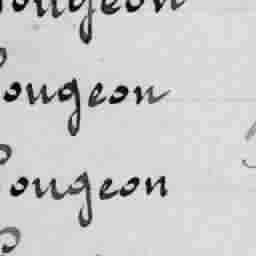 ougeon
ougeon
ougeon